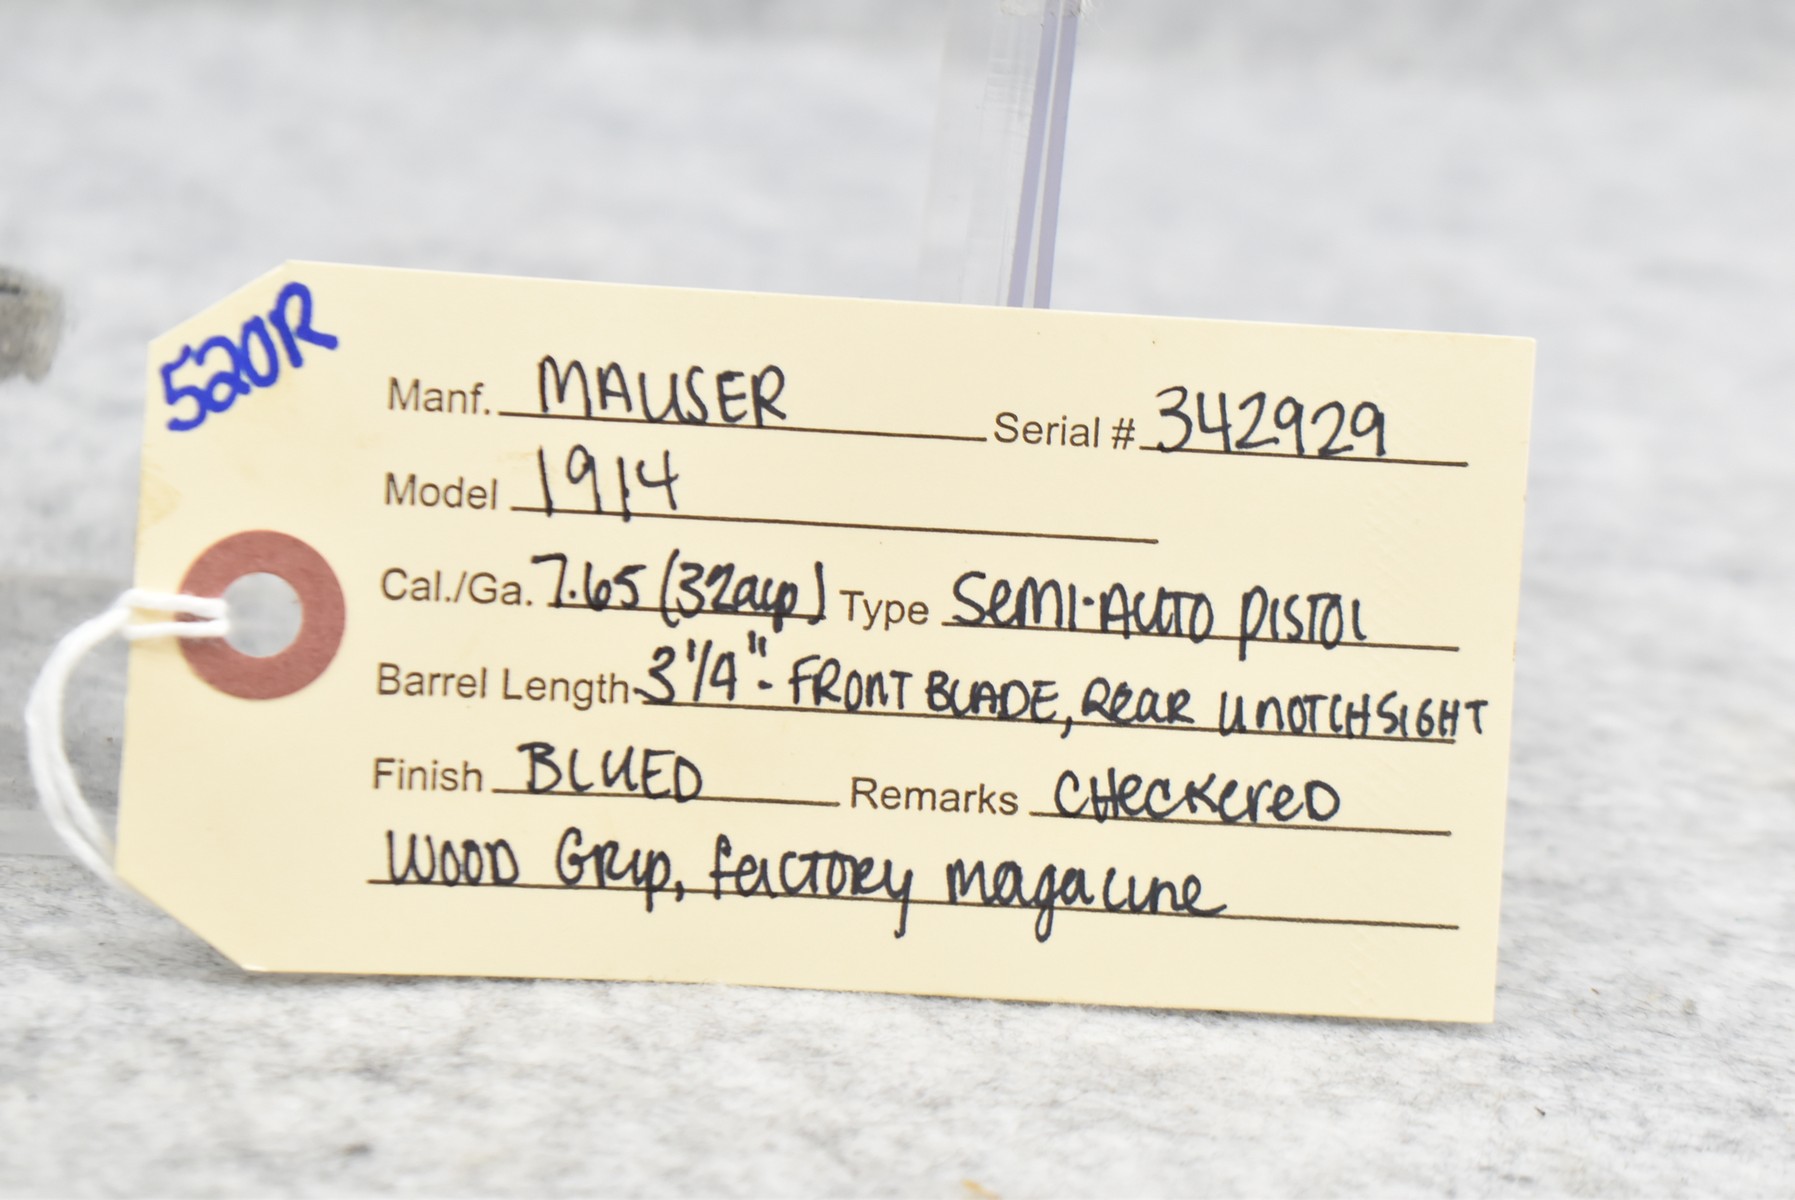 520R
Manf. MAUSER Serial # 342929
Model 1914
Cal./Ga. 7.65 (32acp) Type SEMI-AUTO PISTOL
Barrel Length 3 1/4" - FRONT BLADE, REAR U NOTCH SIGHT
Finish BLUED Remarks CHECKERED
WOOD GRIP, factory magazine